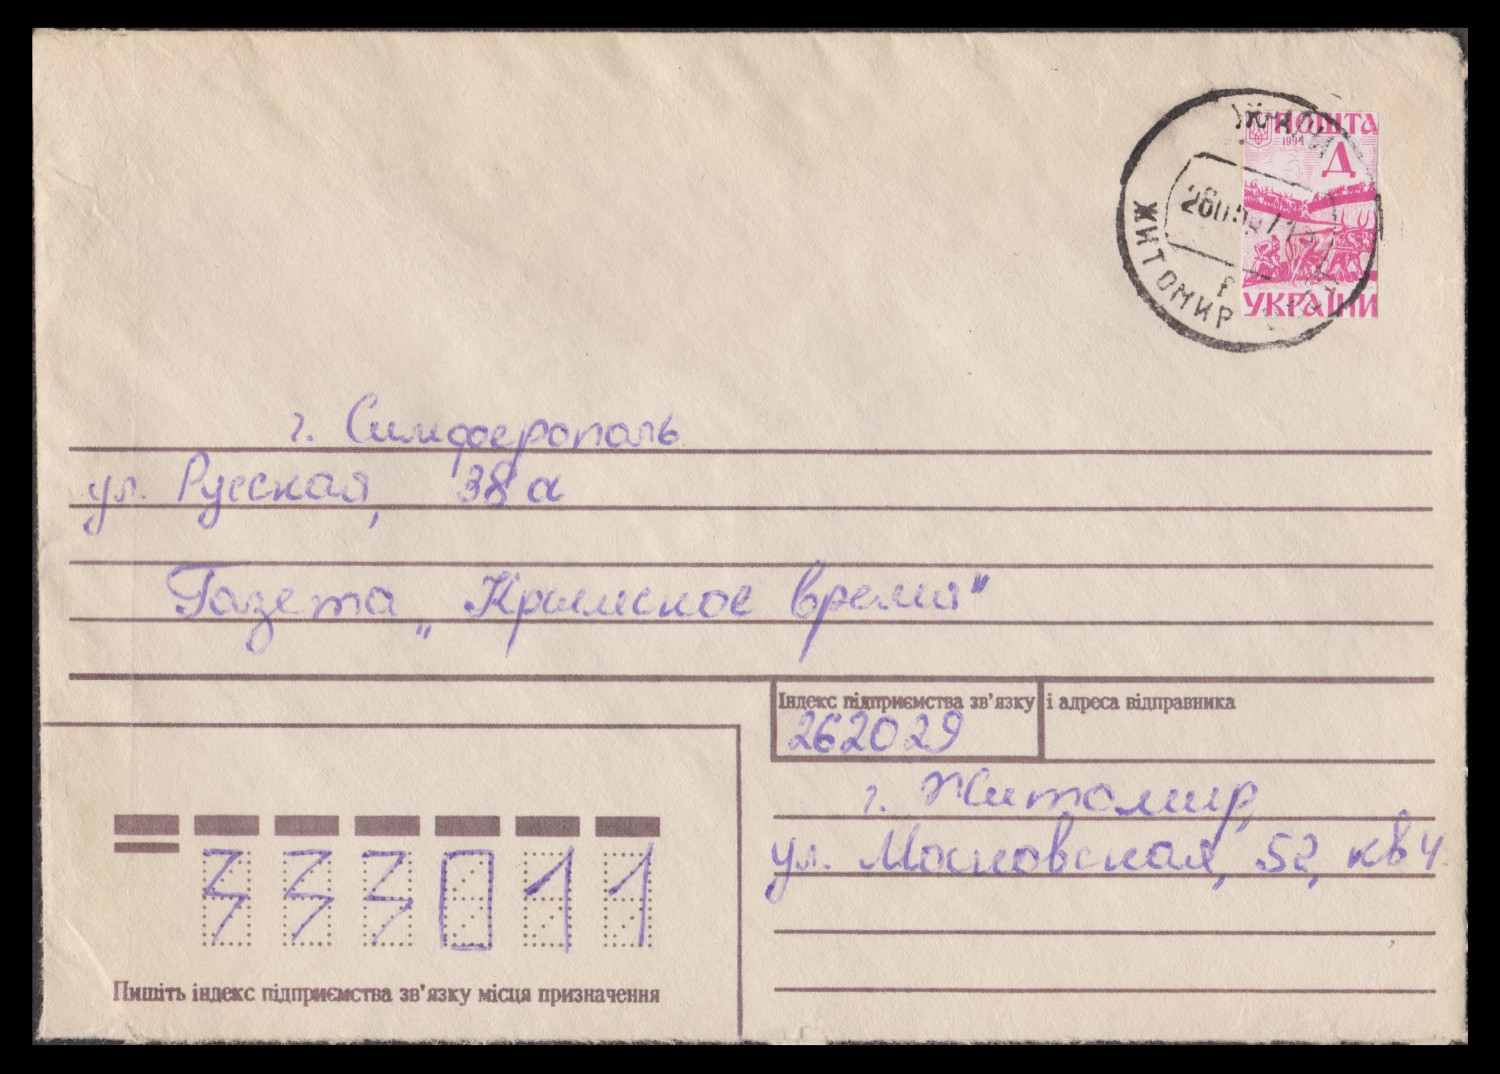 ПОШТА
1994
Д
УКРАЇНИ
ЖИТОМИР
г. Симферополь
ул. Русская, 38 а
Газета „Крымское время"
Індекс підприємства зв'язку і адреса відправника
262029
г. Житомир,
ул. Московская, 52, кв 4.
333011
Пишіть індекс підприємства зв'язку місця призначення